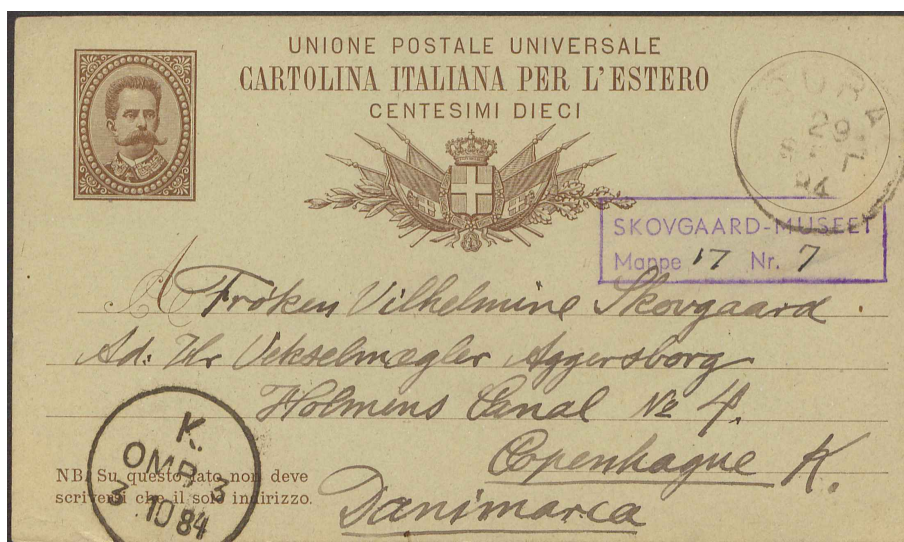 UNIONE POSTALE UNIVERSALE
CARTOLINA ITALIANA PER L'ESTERO
CENTESIMI DIECI
29
84
SKOVGAARD-MUSEET
Mappe 17 Nr. 7
A Frøken Vilhelmine Skovgaard
Ad: Hr Vekselmægler Aggersborg
Holmens Canal № 4.
Copenhague K.
Danimarca
K.
OMB. 3
3 10 84
NB. Su questo lato non deve
scriversi che il solo indirizzo.